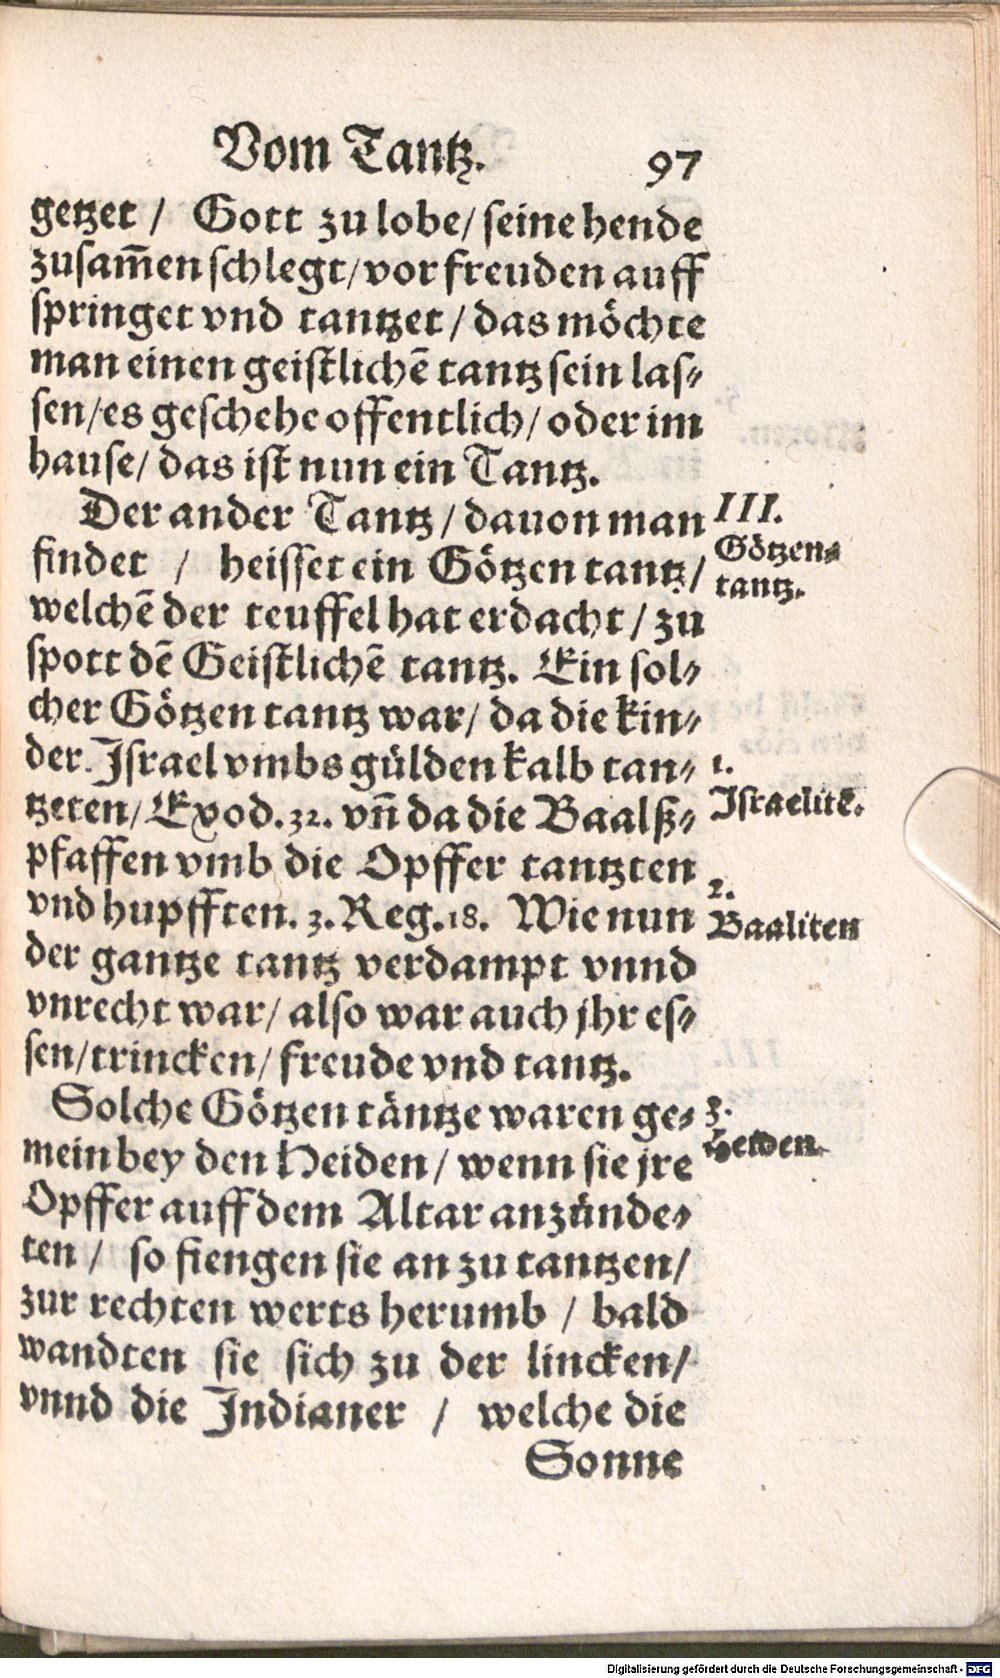 Vom Tantz. 97
getzet / Gott zu lobe/ seine hende
zusam̄en schlegt/vor freuden auff
springet vnd tantzet / das möchte
man einen geistlichē tantz sein las⸗
sen/es geschehe offentlich/ oder im
hause/ das ist nun ein Tantz.
Der ander Tantz/ dauon man
findet / heisset ein Götzen tantz/
welchē der teuffel hat erdacht / zu
spott dē Geistlichē tantz. Ein sol⸗
cher Götzen tantz war/ da die kin⸗
der Israel vmbs gülden kalb tan⸗
tzeten/ Exod. 32. vn̄ da die Baalß⸗
pfaffen vmb die Opffer tantzten
vnd hupfften. 3. Reg. 18. Wie nun
der gantze tantz verdampt vnnd
vnrecht war/ also war auch jhr es⸗
sen/trincken/ freude vnd tantz.
Solche Götzen täntze waren ge⸗
mein bey den Heiden/ wenn sie jre
Opffer auff dem Altar anzünde⸗
ten / so fiengen sie an zu tantzen/
zur rechten werts herumb / bald
wandten sie sich zu der lincken/
vnnd die Indianer / welche die
Sonne
III.
Götzen⸗
tantz.
1.
Israelitē.
2.
Baaliten
3.
Heiden.
Digitalisierung gefördert durch die Deutsche Forschungsgemeinschaft - DFG